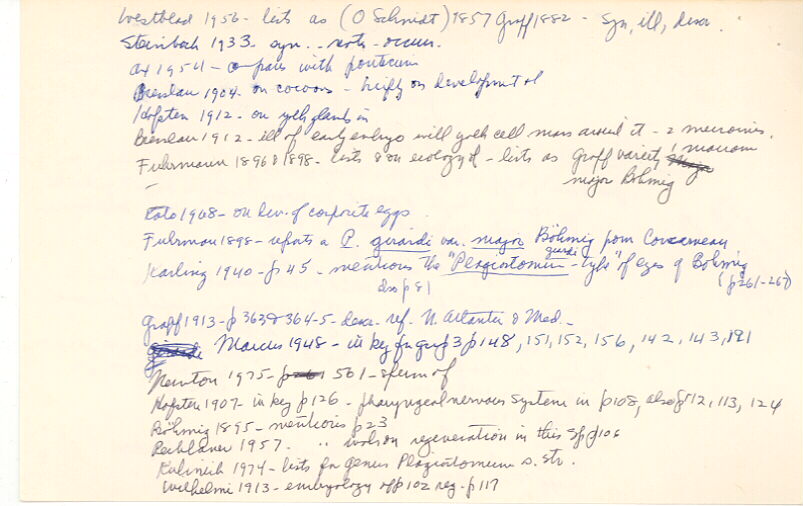 Westblad 1956 - lists as (O Schmidt) 1857 Graff 1882 - syn, ill, descr.
Steinbock 1933 - syn. - note - occurr.
Ax 1954 - compares with ponticum
Bresslau 1904 - on cocoons - briefly on development of
Hofsten 1912 - on yolk glands in
Bresslau 1912 - ill of early embryo with yolk cell mass around it - 2 memoires.
Fuhrmann 1896 & 1898 - lists & on ecology of - lists as Graff variety
major Böhmig
Kato 1968 - on dev. of composite eggs.
Fuhrman 1898 - reports a P. girardi var. major Böhmig from Concarneau
Karling 1940 - p 45 - mentions the "Plagiostomum girardi - type" of eyes of Böhmig
(p261-267)
also p 81
Graff 1913 - p 363 & 364-5 - descr. ref. N. Atlantic & Med. -
Marcus 1948 - in key fn grp 3 p 148, 151, 152, 156, 142, 143, 191
Newton 1975 - p 501 - sperm of
Hofsten 1907 - in key p 126 - pharyngeal nervous system in p 108, also p 112, 113, 124
Böhmig 1895 - mentions p 23
Reiblaner 1957 - " regeneration in this sp p 106
Kulinich 1974 - lists fn genus Plagiostomum s. str.
Wilhelmi 1913 - embryology of p 102 reg - p 117